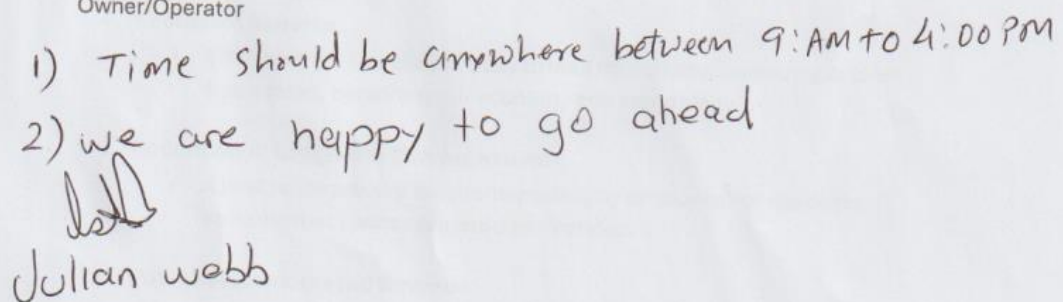 Owner/Operator
1) Time should be anywhere between 9:AM TO 4:00 PM
2) we are happy to go ahead
Julian webb